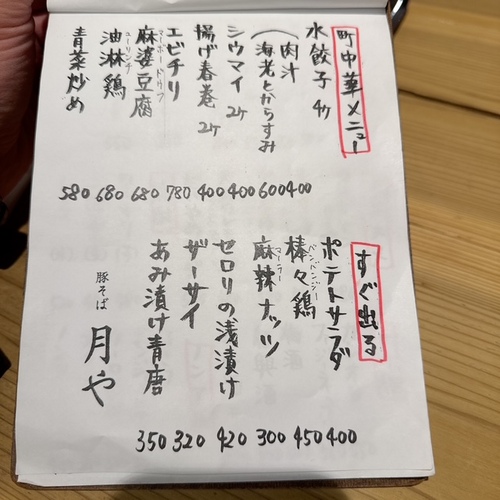 町中華メニュー
水餃子 4ケ
(肉汁 400
海老とからすみ 600
シウマイ 2ケ 400
揚げ春巻 2ケ 400
エビチリ 780
マーボードウフ
麻婆豆腐 680
ユーリンチ
油淋鶏 680
青菜炒め 580
すぐ出る
ポテトサラダ 400
バンバンジー
棒々鶏 450
マーラー
麻辣ナッツ 300
セロリの浅漬け 420
ザーサイ 320
あみ漬け青唐 350
豚そば
月や